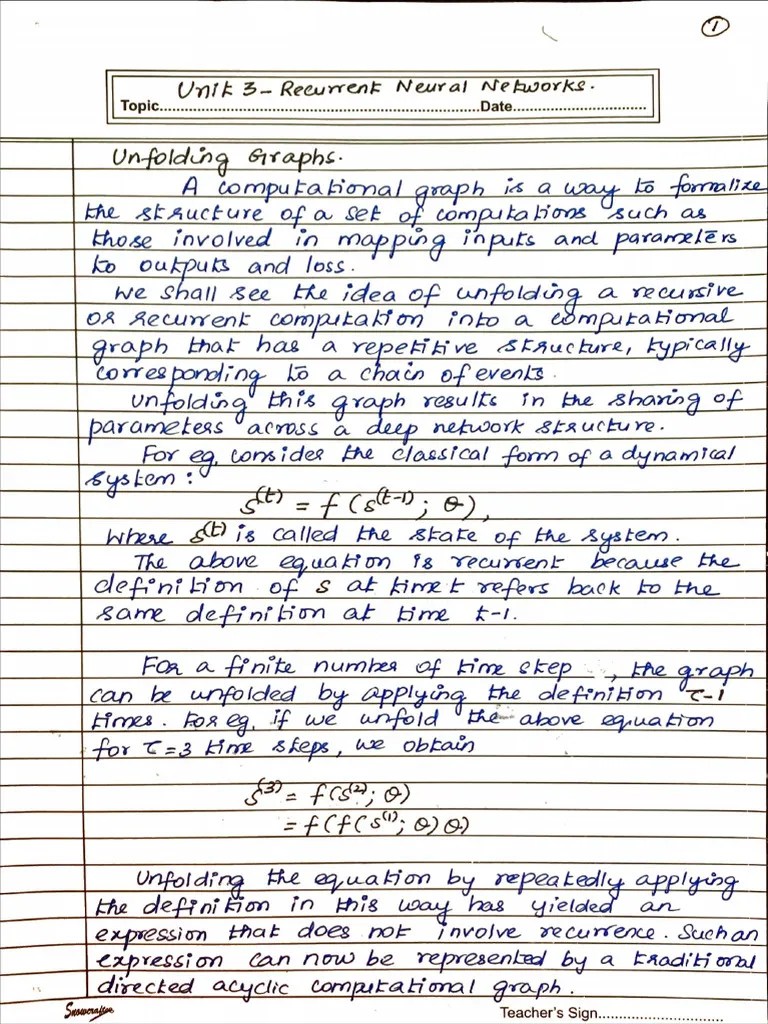 1
Unit 3 - Recurrent Neural Networks.
Topic..........Date..........
Unfolding Graphs.
A computational graph is a way to formalize
the structure of a set of computations such as
those involved in mapping inputs and parameters
to outputs and loss.
We shall see the idea of unfolding a recursive
or recurrent computation into a computational
graph that has a repetitive structure, typically
corresponding to a chain of events.
Unfolding this graph results in the sharing of
parameters across a deep network structure.
For eg, consider the classical form of a dynamical
system:
s^(t) = f (s^(t-1); θ),
where s^(t) is called the state of the system.
The above equation is recurrent because the
definition of s at time t refers back to the
same definition at time t-1.
For a finite number of time step , the graph
can be unfolded by applying the definition τ-1
times. For eg, if we unfold the above equation
for τ=3 time steps, we obtain
s^(3) = f(s^(2); θ)
= f(f(s^(1); θ) θ)
Unfolding the equation by repeatedly applying
the definition in this way has yielded an
expression that does not involve recurrence. Such an
expression can now be represented by a traditional
directed acyclic computational graph.
Teacher's Sign..........